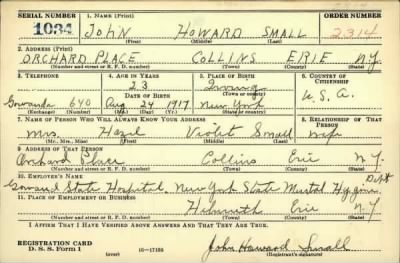 SERIAL NUMBER 1. NAME (Print) ORDER NUMBER
1034 JOHN HOWARD SMALL 2314
(First) (Middle) (Last)
2. ADDRESS (Print)
ORCHARD PLACE COLLINS ERIE N.Y.
(Number and street or R. F. D. number) (Town) (County) (State)
3. TELEPHONE 4. AGE IN YEARS 5. PLACE OF BIRTH 6. COUNTRY OF CITIZENSHIP
23 Irving
DATE OF BIRTH (Town or county)
Gowanda 640 Aug 24 1917 New York U.S.A.
(Exchange) (Number) (Mo.) (Day) (Yr.) (State or country)
7. NAME OF PERSON WHO WILL ALWAYS KNOW YOUR ADDRESS 8. RELATIONSHIP OF THAT PERSON
Mrs. Hazel Violet Small wife
(Mr., Mrs., Miss) (First) (Middle) (Last)
9. ADDRESS OF THAT PERSON
Orchard Place Collins Erie N.Y.
(Number and street or R. F. D. number) (Town) (County) (State)
10. EMPLOYER'S NAME Dept
Gowanda State Hospital, New York State Mental Hygiene
11. PLACE OF EMPLOYMENT OR BUSINESS
Helmuth Erie N.Y.
(Number and street or R. F. D. number) (Town) (County) (State)
I AFFIRM THAT I HAVE VERIFIED ABOVE ANSWERS AND THAT THEY ARE TRUE.
REGISTRATION CARD
D. S. S. Form 1 John Howard Small
(Registrant's signature)